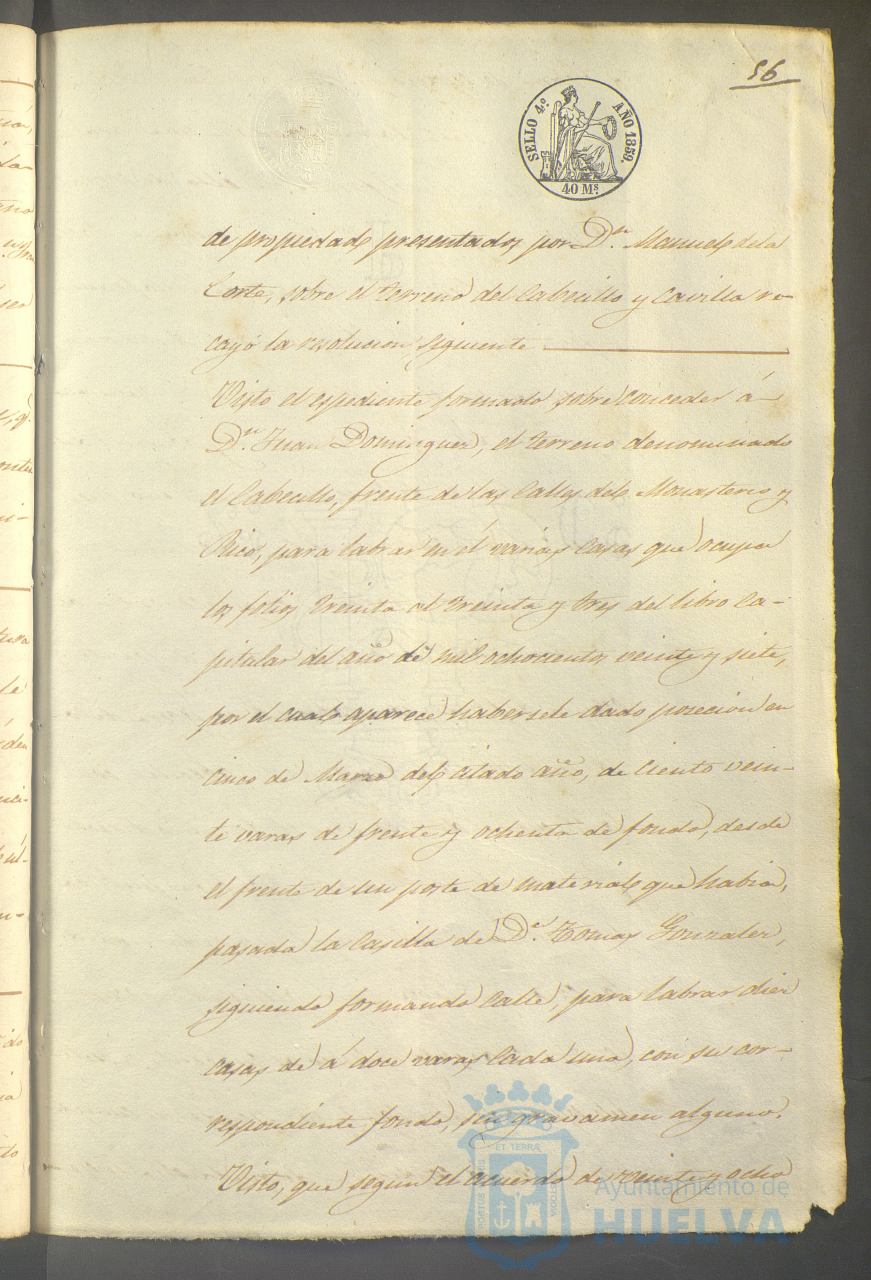 56
SELLO 4.º AÑO 1859.
40 Ms.
de propiedad presentados por Dn. Manuel de la
Corte, sobre el terreno del Cabecillo y Cavilla re-
cayó la resolucion siguiente
Visto el espediente formado sobre conceder á
Dn. Juan Dominguez, el terreno denominado
el Cabecillo, frente de las Calles del Monasterio y
Rico, para labrar en él varias casas que ocupa
los folios treinta al treinta y tres del libro Ca-
pitular del año de mil ochocientos veinte y siete,
por el cual aparece habersele dado posecion en
cinco de Marzo del citado año, de ciento vein-
te varas de frente y ochenta de fondo, desde
el frente de un poste de material que habia,
pasada la Casilla de Dn. Tomas Gonzalez,
siguiendo formando Calle, para labrar diez
casas de á doce varas cada una, con su cor-
respondiente fondo, sin gravamen alguno.
Visto, que segun el acuerdo de veinte y ocho
ET TERRÆ
PORTUS MARIS
CUSTODIA
Ayuntamiento de
HUELVA